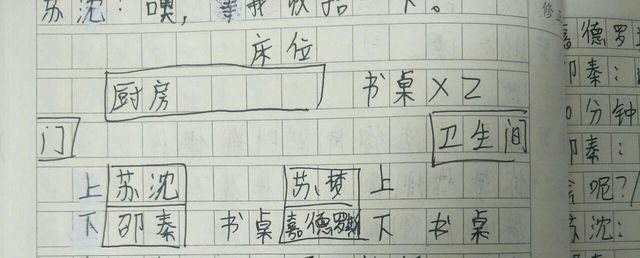 苏沈：噢，等我收拾一下。
修正
床位
厨房 书桌×2
门 卫生间
上 苏沈 苏梦 上
下 邵秦 书桌 嘉德罗斯 下 书桌
嘉德罗
邵秦：
0分钟
邵秦：
呢？
苏沈：